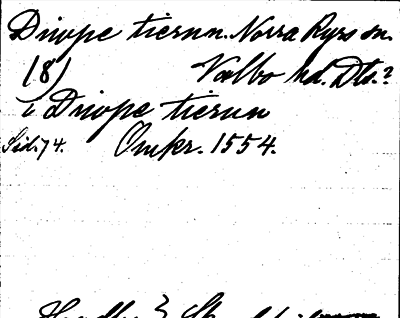 Diupe tierun. Norra Ryrs sn.
(8) Valbo hd. Dls.?
i Diupe tierun
Sid. 74. Omkr. 1554.